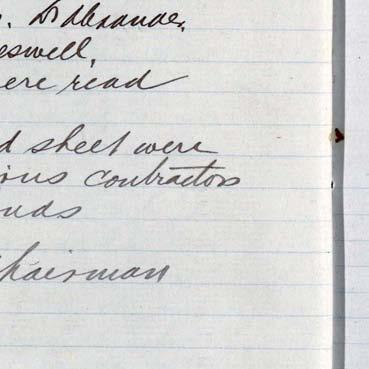 eswell,
ere read
d sheet were
ious contractors
nds
hairman